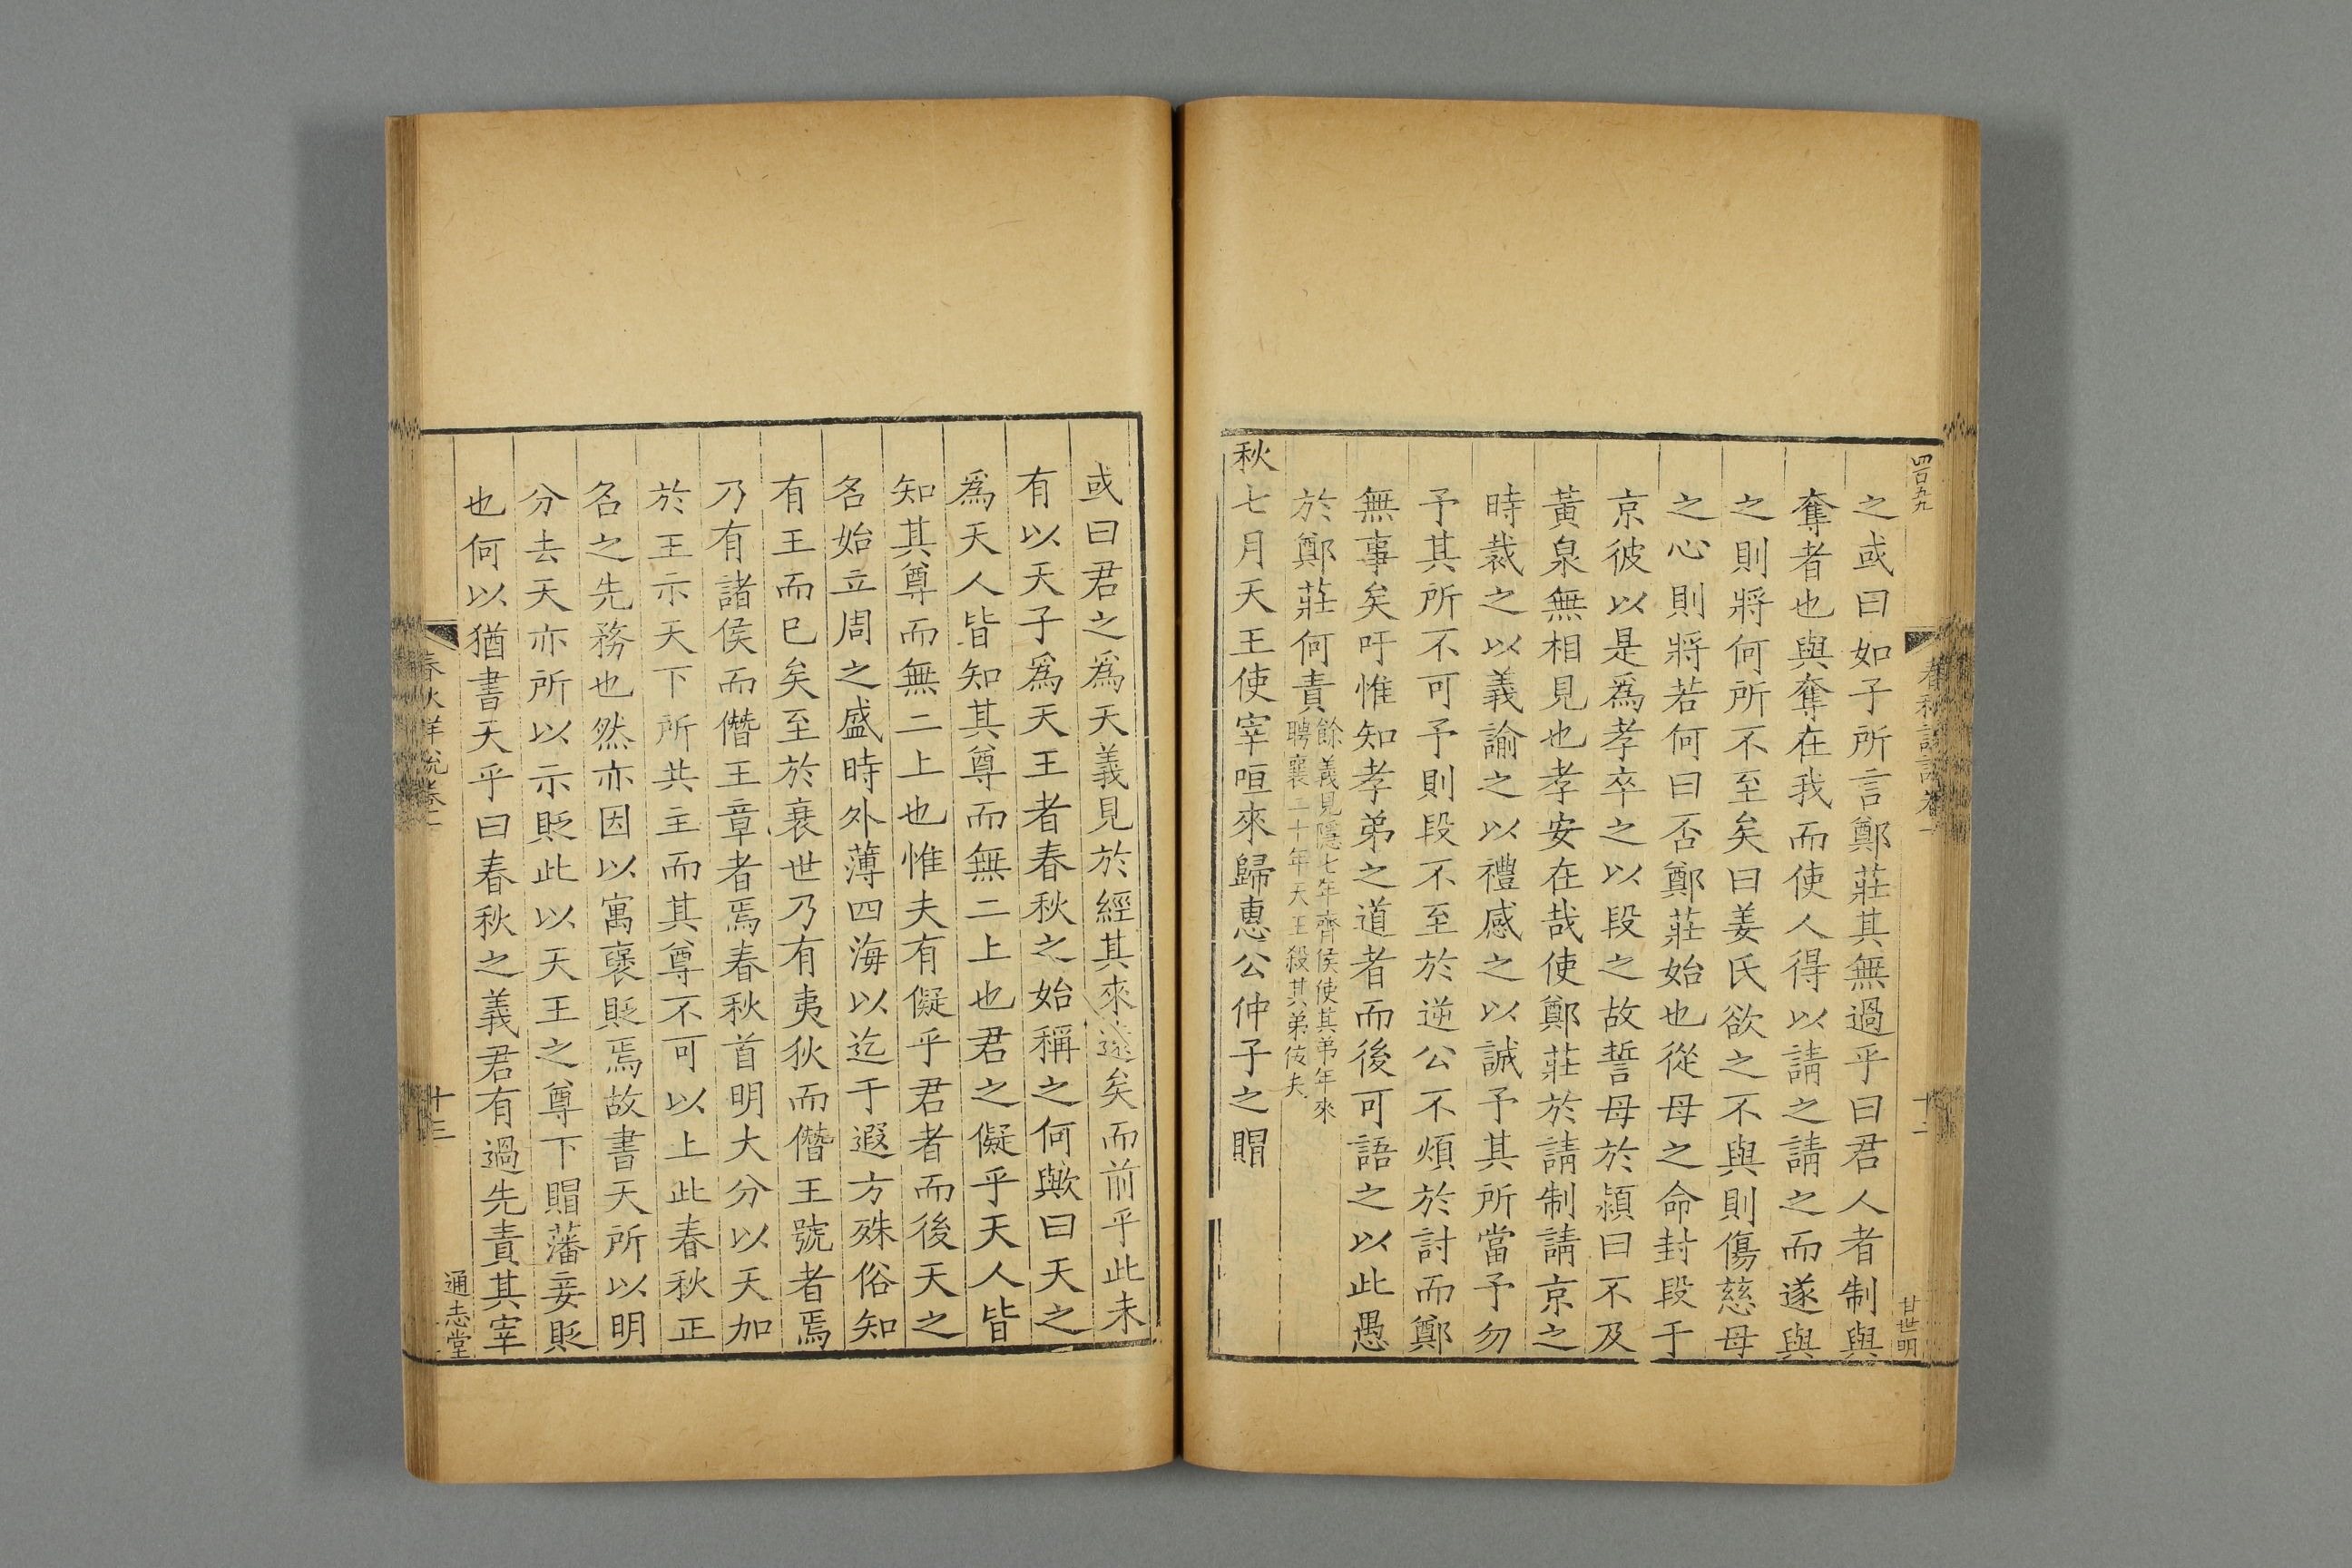 四百五九
之或曰如子所言鄭莊其無過乎曰君人者制與
奪者也與奪在我而使人得以請之請之而遂與
之則將何所不至矣曰姜氏欲之不與則傷慈母
之心則將若何曰否鄭莊始也從母之命封段于
京彼以是爲孝卒之以段之故誓母於潁曰不及
黃泉無相見也孝安在哉使鄭莊於請制請京之
時裁之以義諭之以禮感之以誠予其所當予勿
予其所不可予則段不至於逆公不煩於討而鄭
無事矣吁惟知孝弟之道者而後可語之以此愚
於鄭莊何責餘義見隱七年齊侯使其弟年來
聘襄三十年天王殺其弟佞夫
秋七月天王使宰咺來歸惠公仲子之賵
甘世明
或曰君之爲天義見於經其來遠矣而前乎此未
有以天子爲天王者春秋之始稱之何歟曰天之
爲天人皆知其尊而無二上也君之儗乎天人皆
知其尊而無二上也惟夫有儗乎君者而後天之
名始立周之盛時外薄四海以迄于遐方殊俗知
有王而已矣至於衰世乃有夷狄而僭王號者焉
乃有諸侯而僭王章者焉春秋首明大分以天加
於王示天下所共主而其尊不可以上此春秋正
名之先務也然亦因以寓褒貶焉故書天所以明
分去天亦所以示貶此以天王之尊下賵藩妾貶
也何以猶書天乎曰春秋之義君有過先責其宰
春秋詳說卷一
十三
通志堂